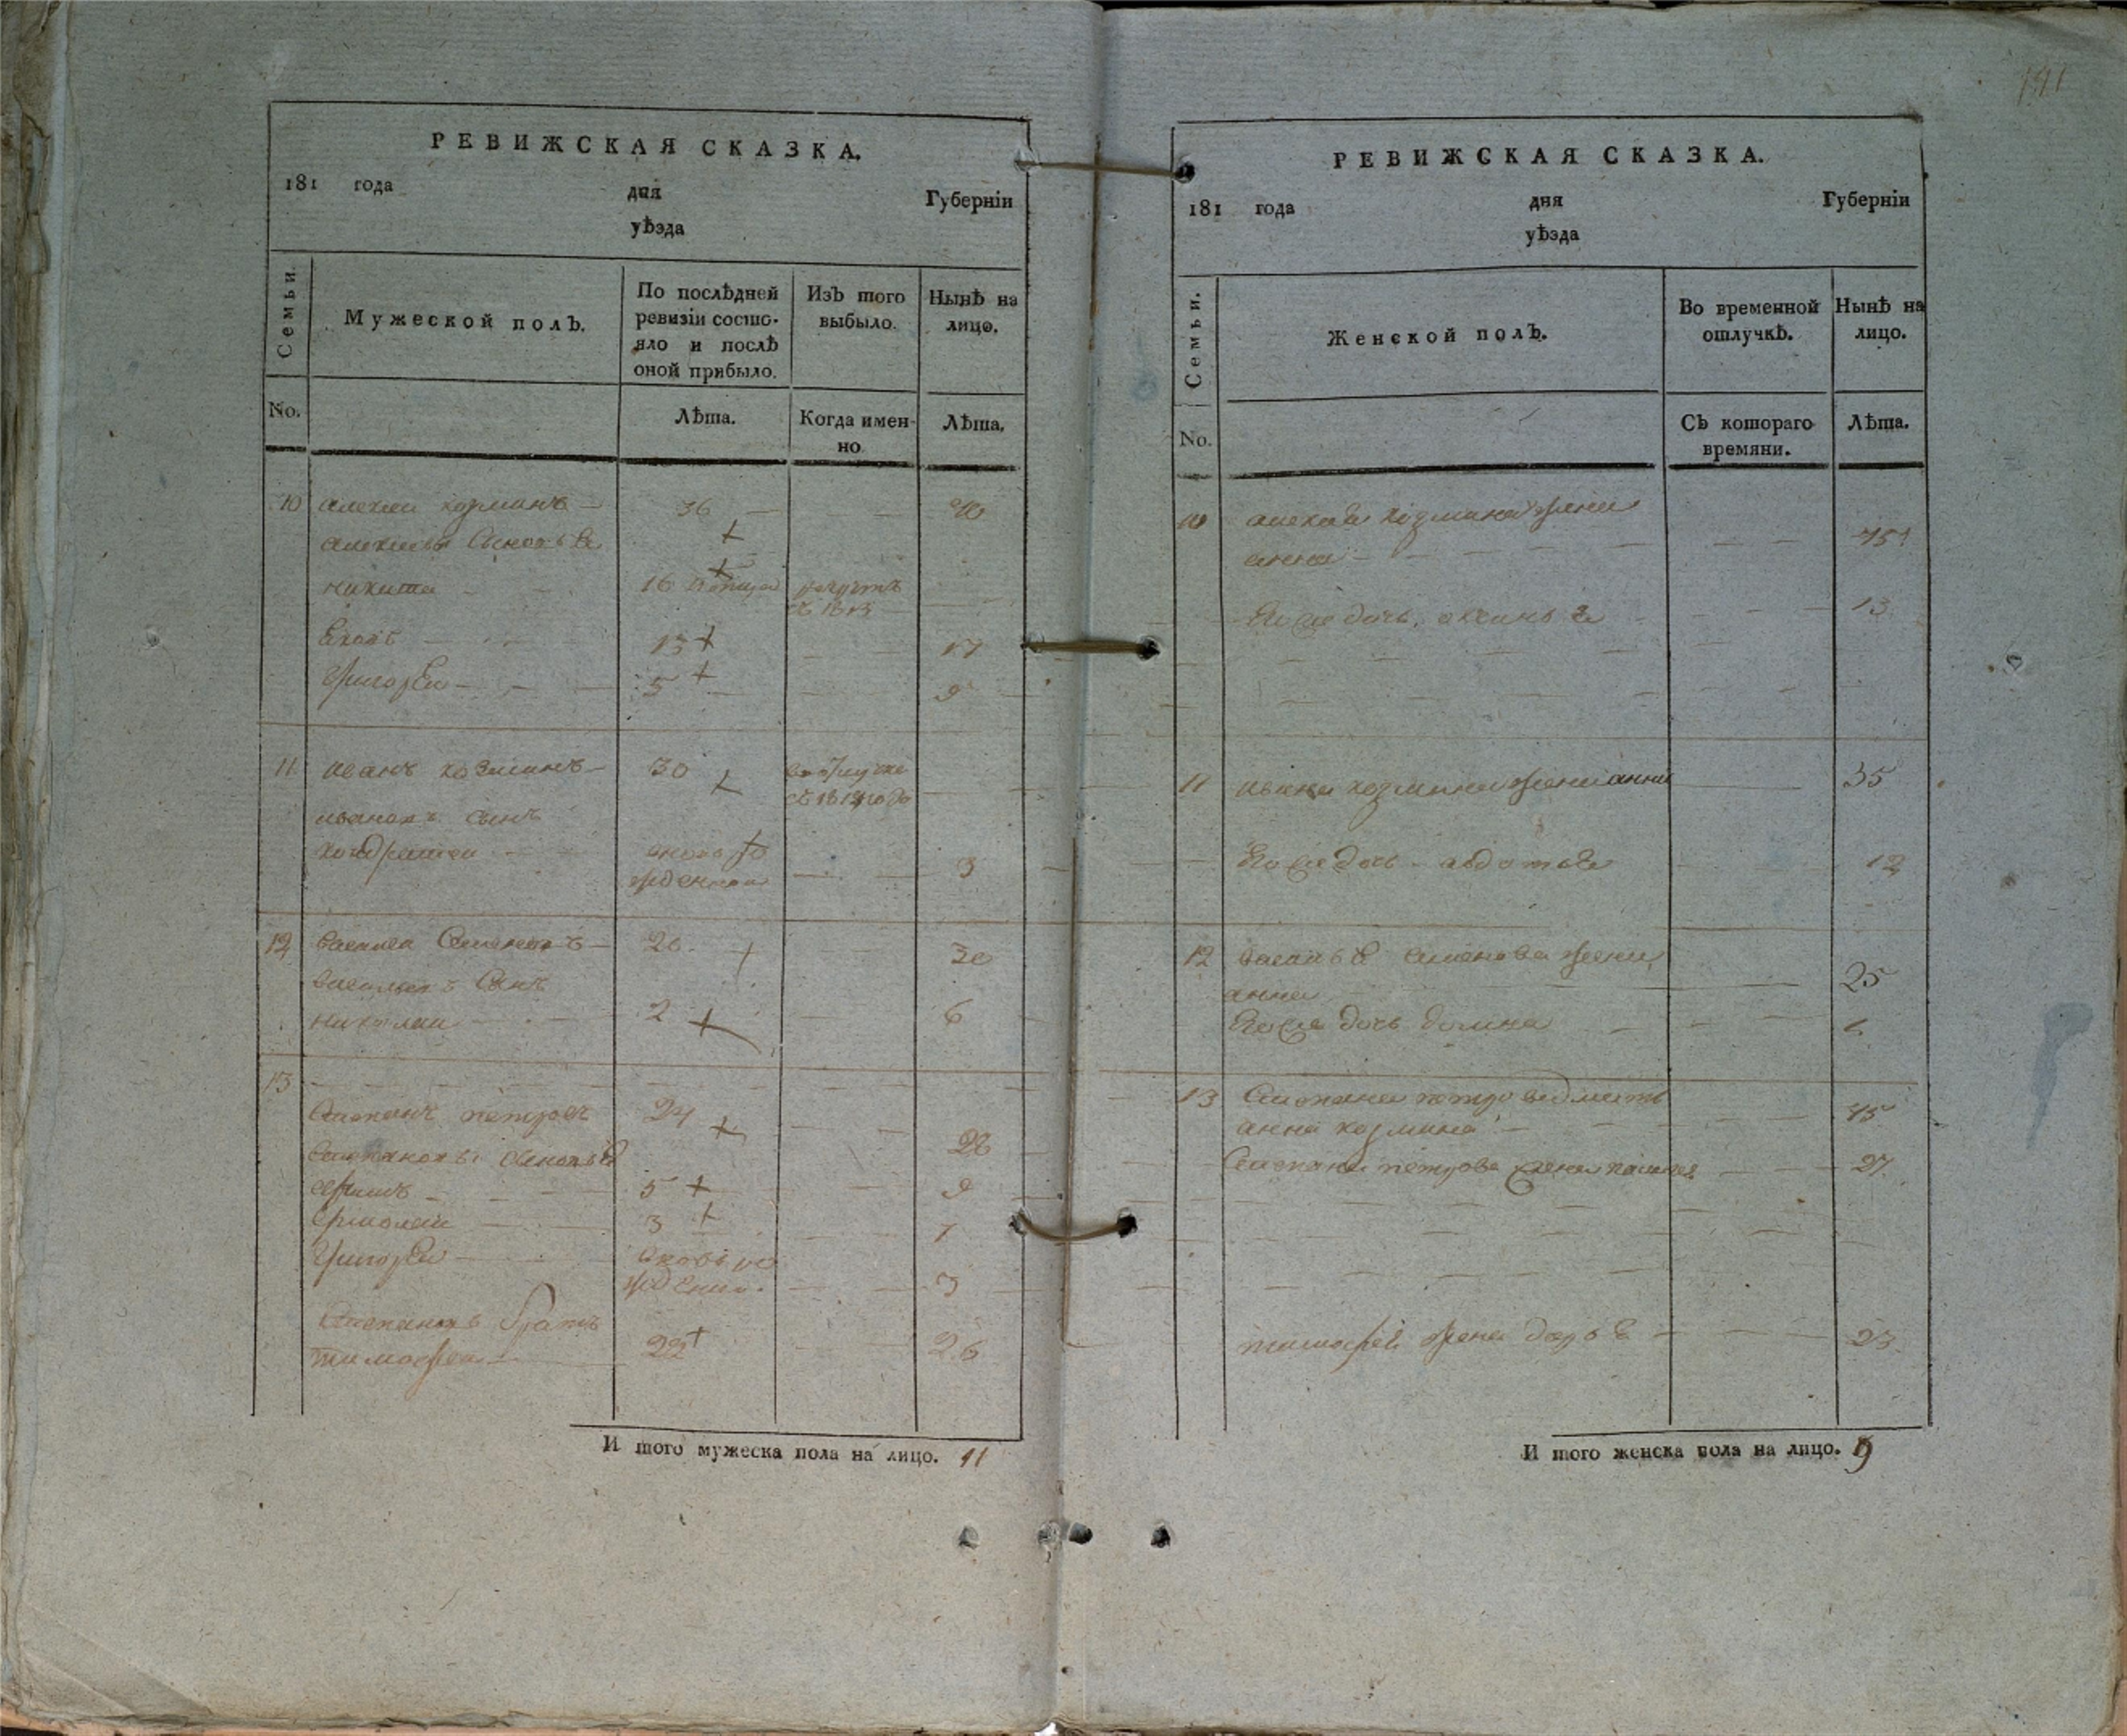 191
РЕВИЖСКАЯ СКАЗКА.
181 года дня Губерніи
уѣзда
Семьи.
Мужеской полъ.
По послѣдней ревизіи состояло и послѣ оной прибыло.
Изъ того выбыло.
Нынѣ на лицо.
No.
Лѣта.
Когда именно
Лѣта.
10 алексеи козминъ 36 40
алексѣевы Сыновья
никита 16 рекрутъ
въ 1813
Яковъ 13 17
Григореи 5 9
11 иванъ козминъ 30
въ 1812 году
ивановъ сынъ
кондратеи вновь ро
жденнои 3
12 василеи Семеновъ 26 30
васильевъ Сынъ
николаи 2 6
13
Степанъ петровъ 24 28
Степановы сыновья
5 9
ермолаи 3 7
Григореи вновь ро
жденнои 3
Степановъ братъ
тимофеи 22 26
И того мужеска пола на лицо. 11
РЕВИЖСКАЯ СКАЗКА.
181 года дня Губерніи
уѣзда
Семьи.
Женской полъ.
Во временной отлучкѣ.
Нынѣ на лицо.
No.
Съ котораго времяни.
Лѣта.
10 алексея козмина жена
анна 45
Его же дочь аксинья 13
11 ивана козмина жена анна 35
Его же дочь авдотья 12
12 василья Семенова жена
анна 25
Его же дочь домна 6
13 Степана петрова мать
анна козмина 45
Степана петрова жена 27
тимофея жена дарья 23
И того женска пола на лицо. 9